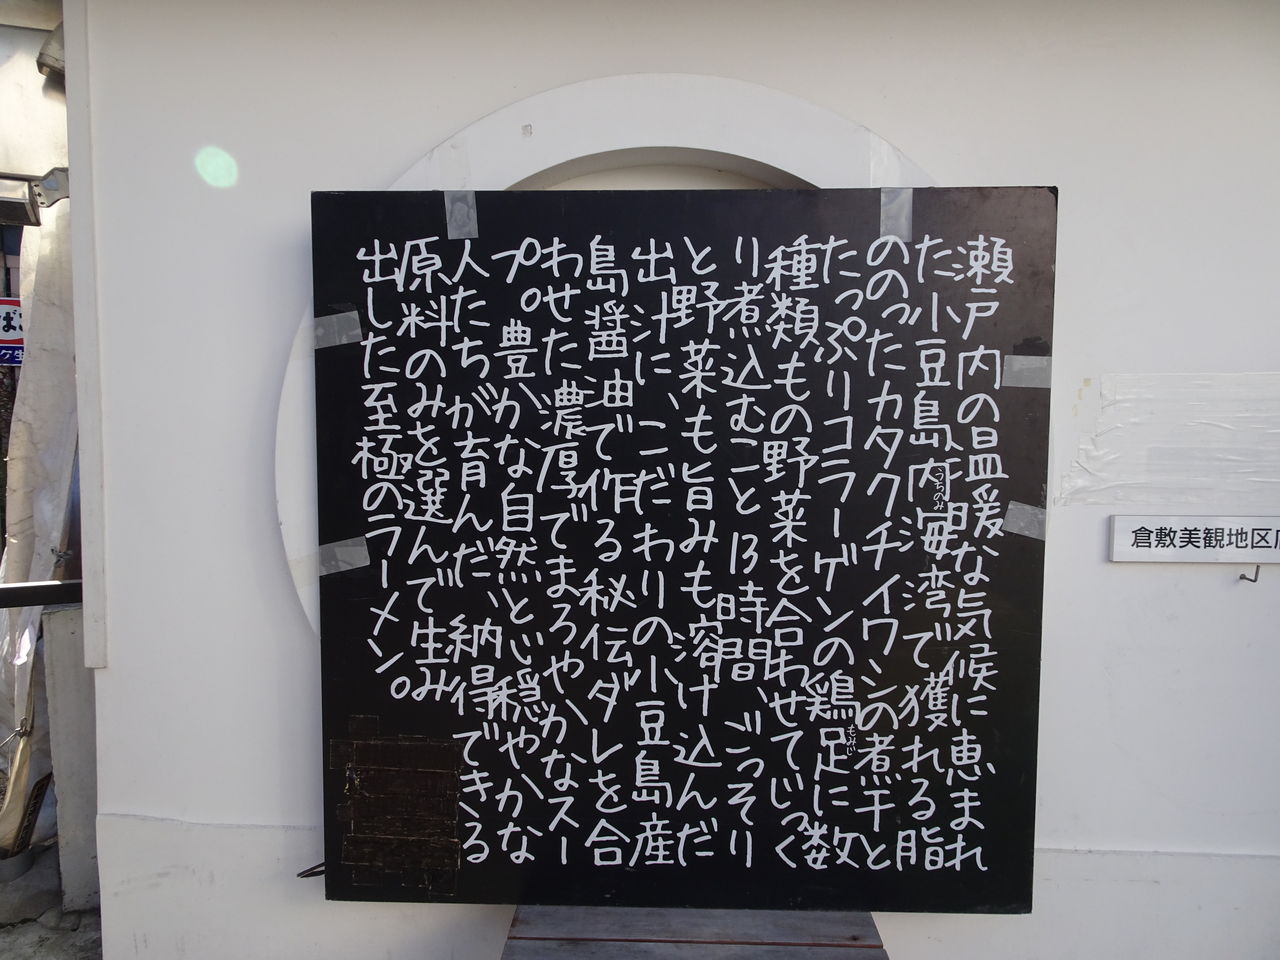 瀬戸内の温暖な気候に恵まれ
た小豆島内海湾で獲れる脂
うちのみ
ののったカタクチイワシの煮干と
たっぷりコラーゲンの鶏足に数
もみじ
種類もの野菜を合わせてじっく
り煮込むこと13時間、ごっそり
と野菜も旨みも溶け込んだ
出汁に、こだわりの小豆島産
島醤油で作る秘伝ダレを合
わせた濃厚でまろやかなスー
プ。豊かな自然と、穏やかな
人たちが育んだ、納得できる
原料のみを選んで生み
出した至極のラーメン。
倉敷美観地区